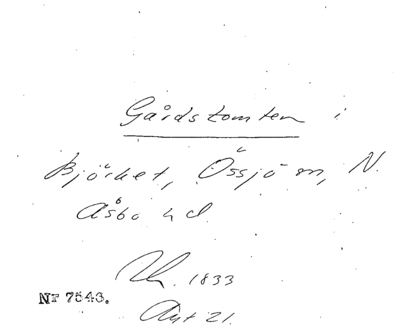 Gårdstomten i
Björket, Össjö sn, N.
Åsbo hd.
1833
Nr 7543.
21.